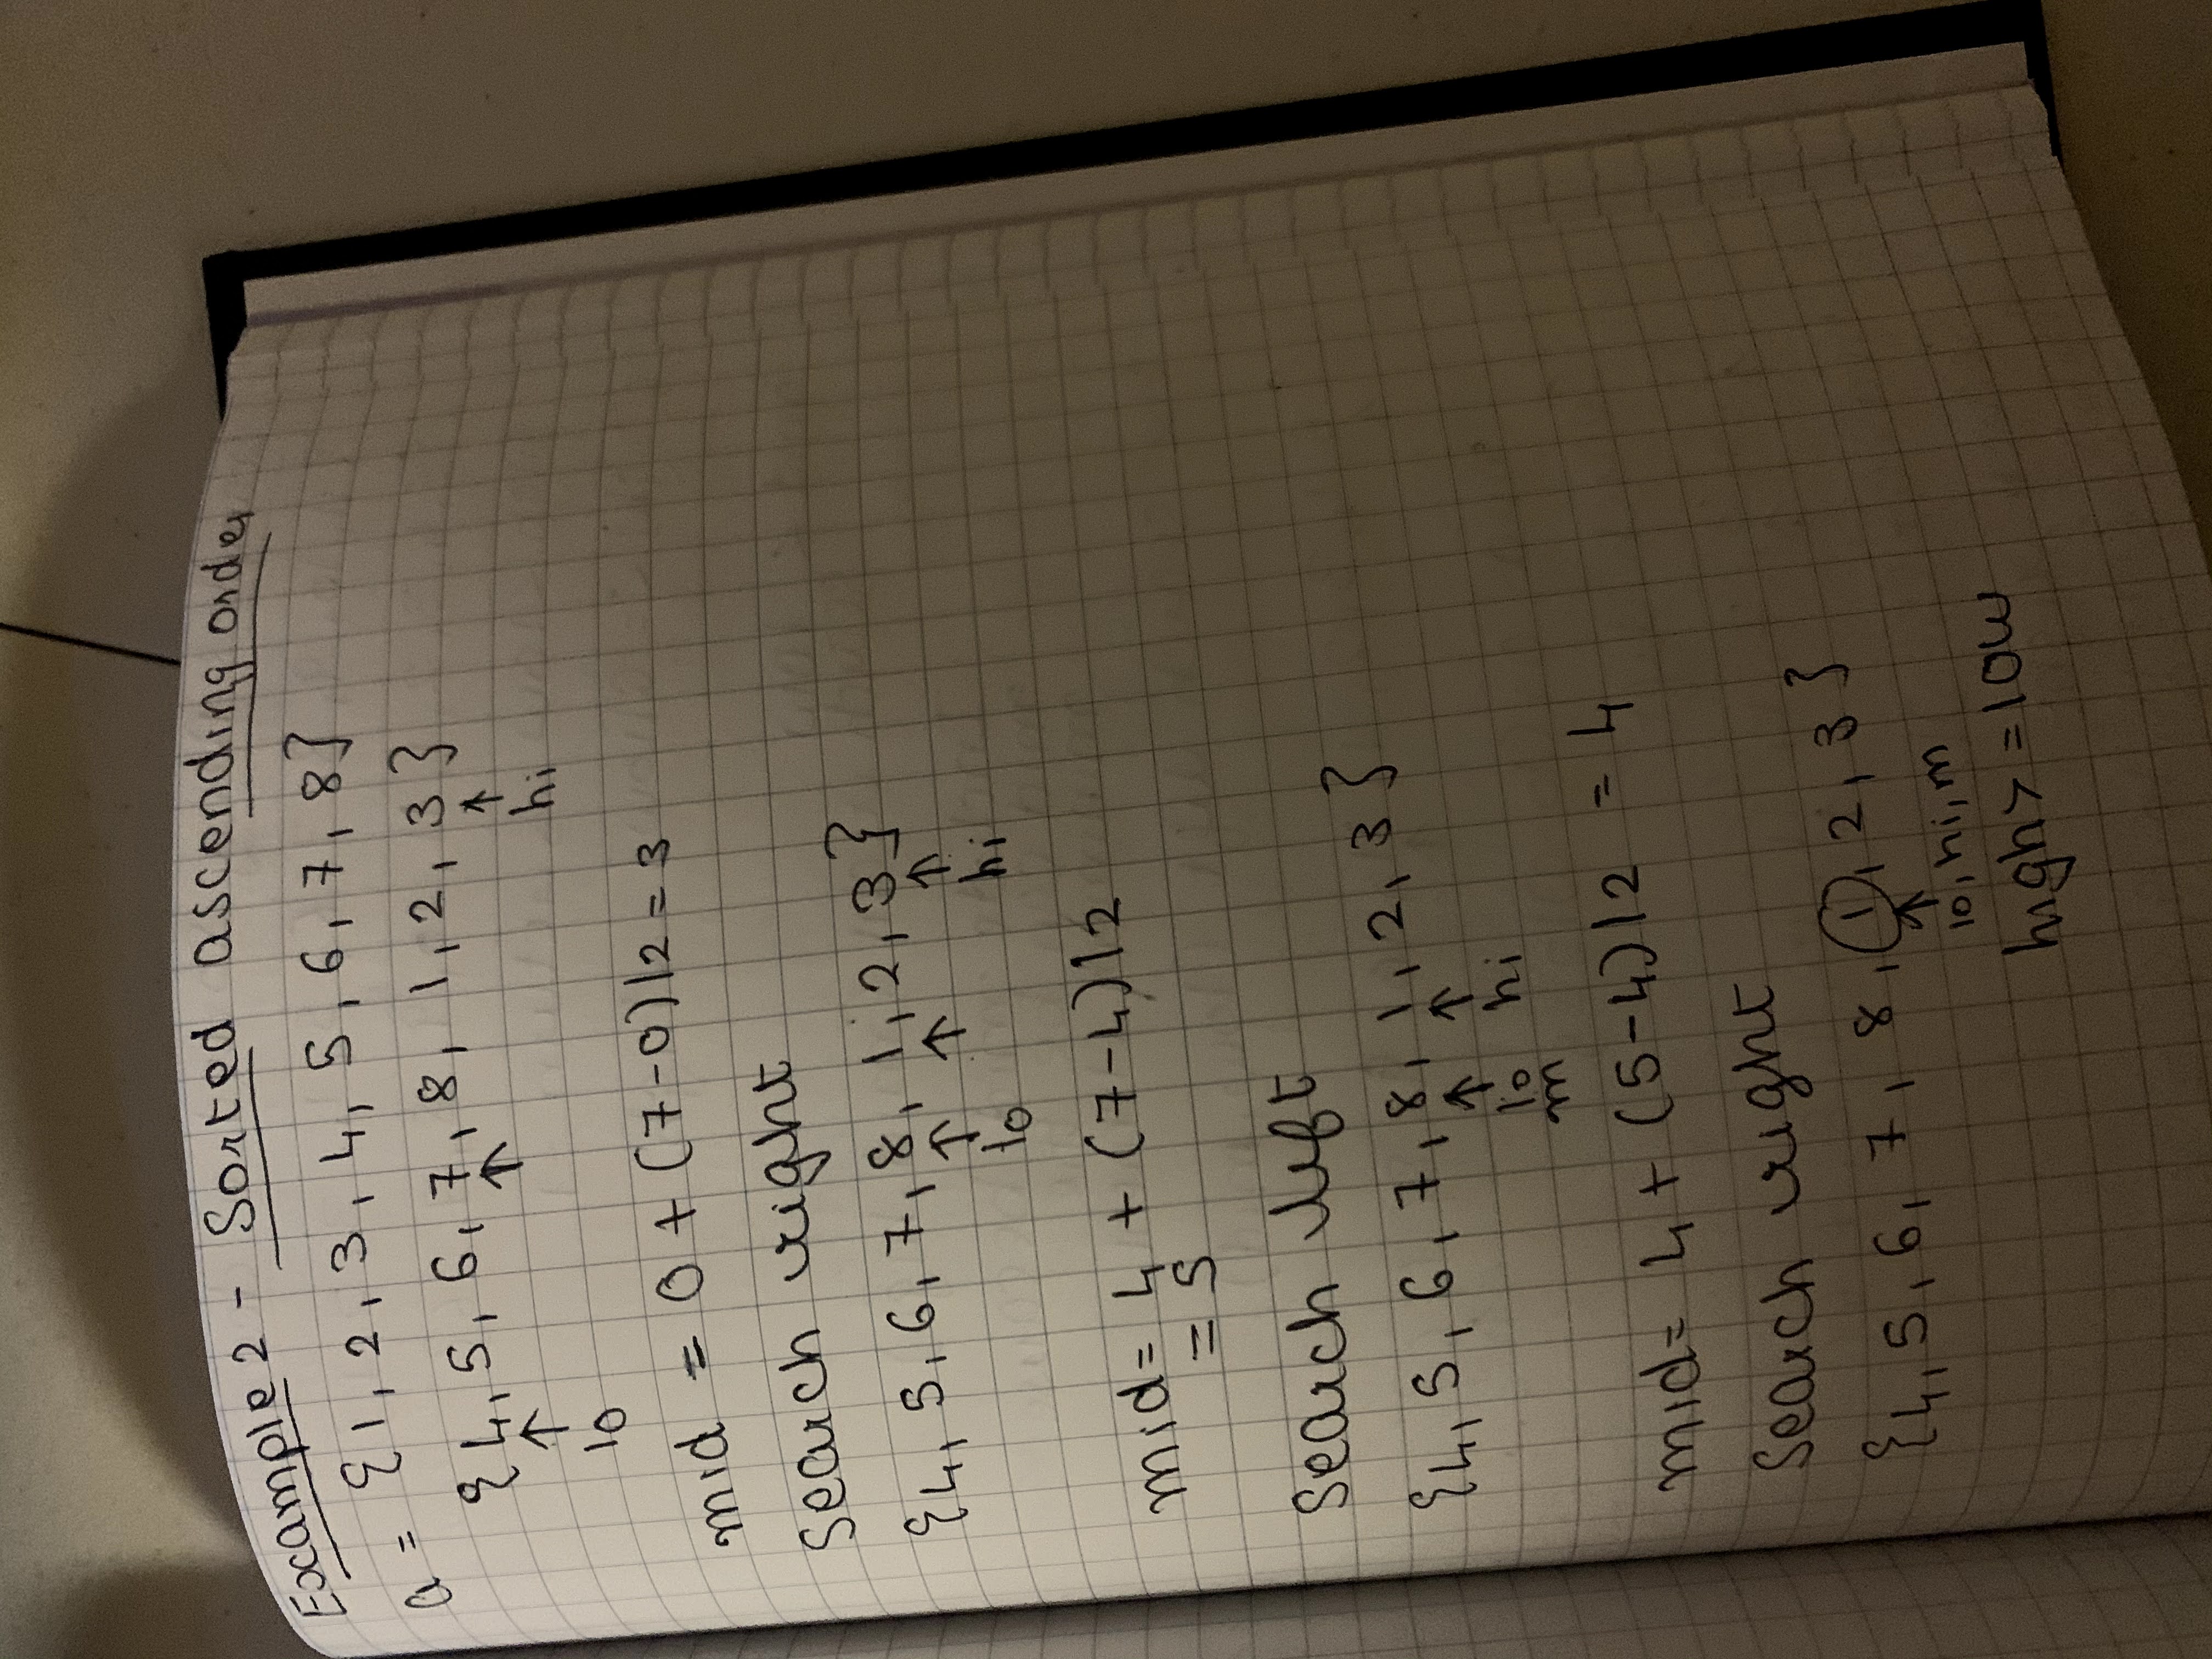 Example 2 - Sorted ascending order
a = {1, 2, 3, 4, 5, 6, 7, 8}
{4, 5, 6, 7, 8, 1, 2, 3}
↑ ↑ ↑
lo hi
mid = 0 + (7-0)/2 = 3
Search right
{4, 5, 6, 7, 8, 1, 2, 3}
↑ ↑ ↑
lo hi
mid = 4 + (7-4)/2
= 5
Search left
{4, 5, 6, 7, 8, 1, 2, 3}
↑ ↑
lo hi
m
mid = 4 + (5-4)/2 = 4
Search right
{4, 5, 6, 7, 8, 1, 2, 3}
↑
lo, hi, m
high >= low